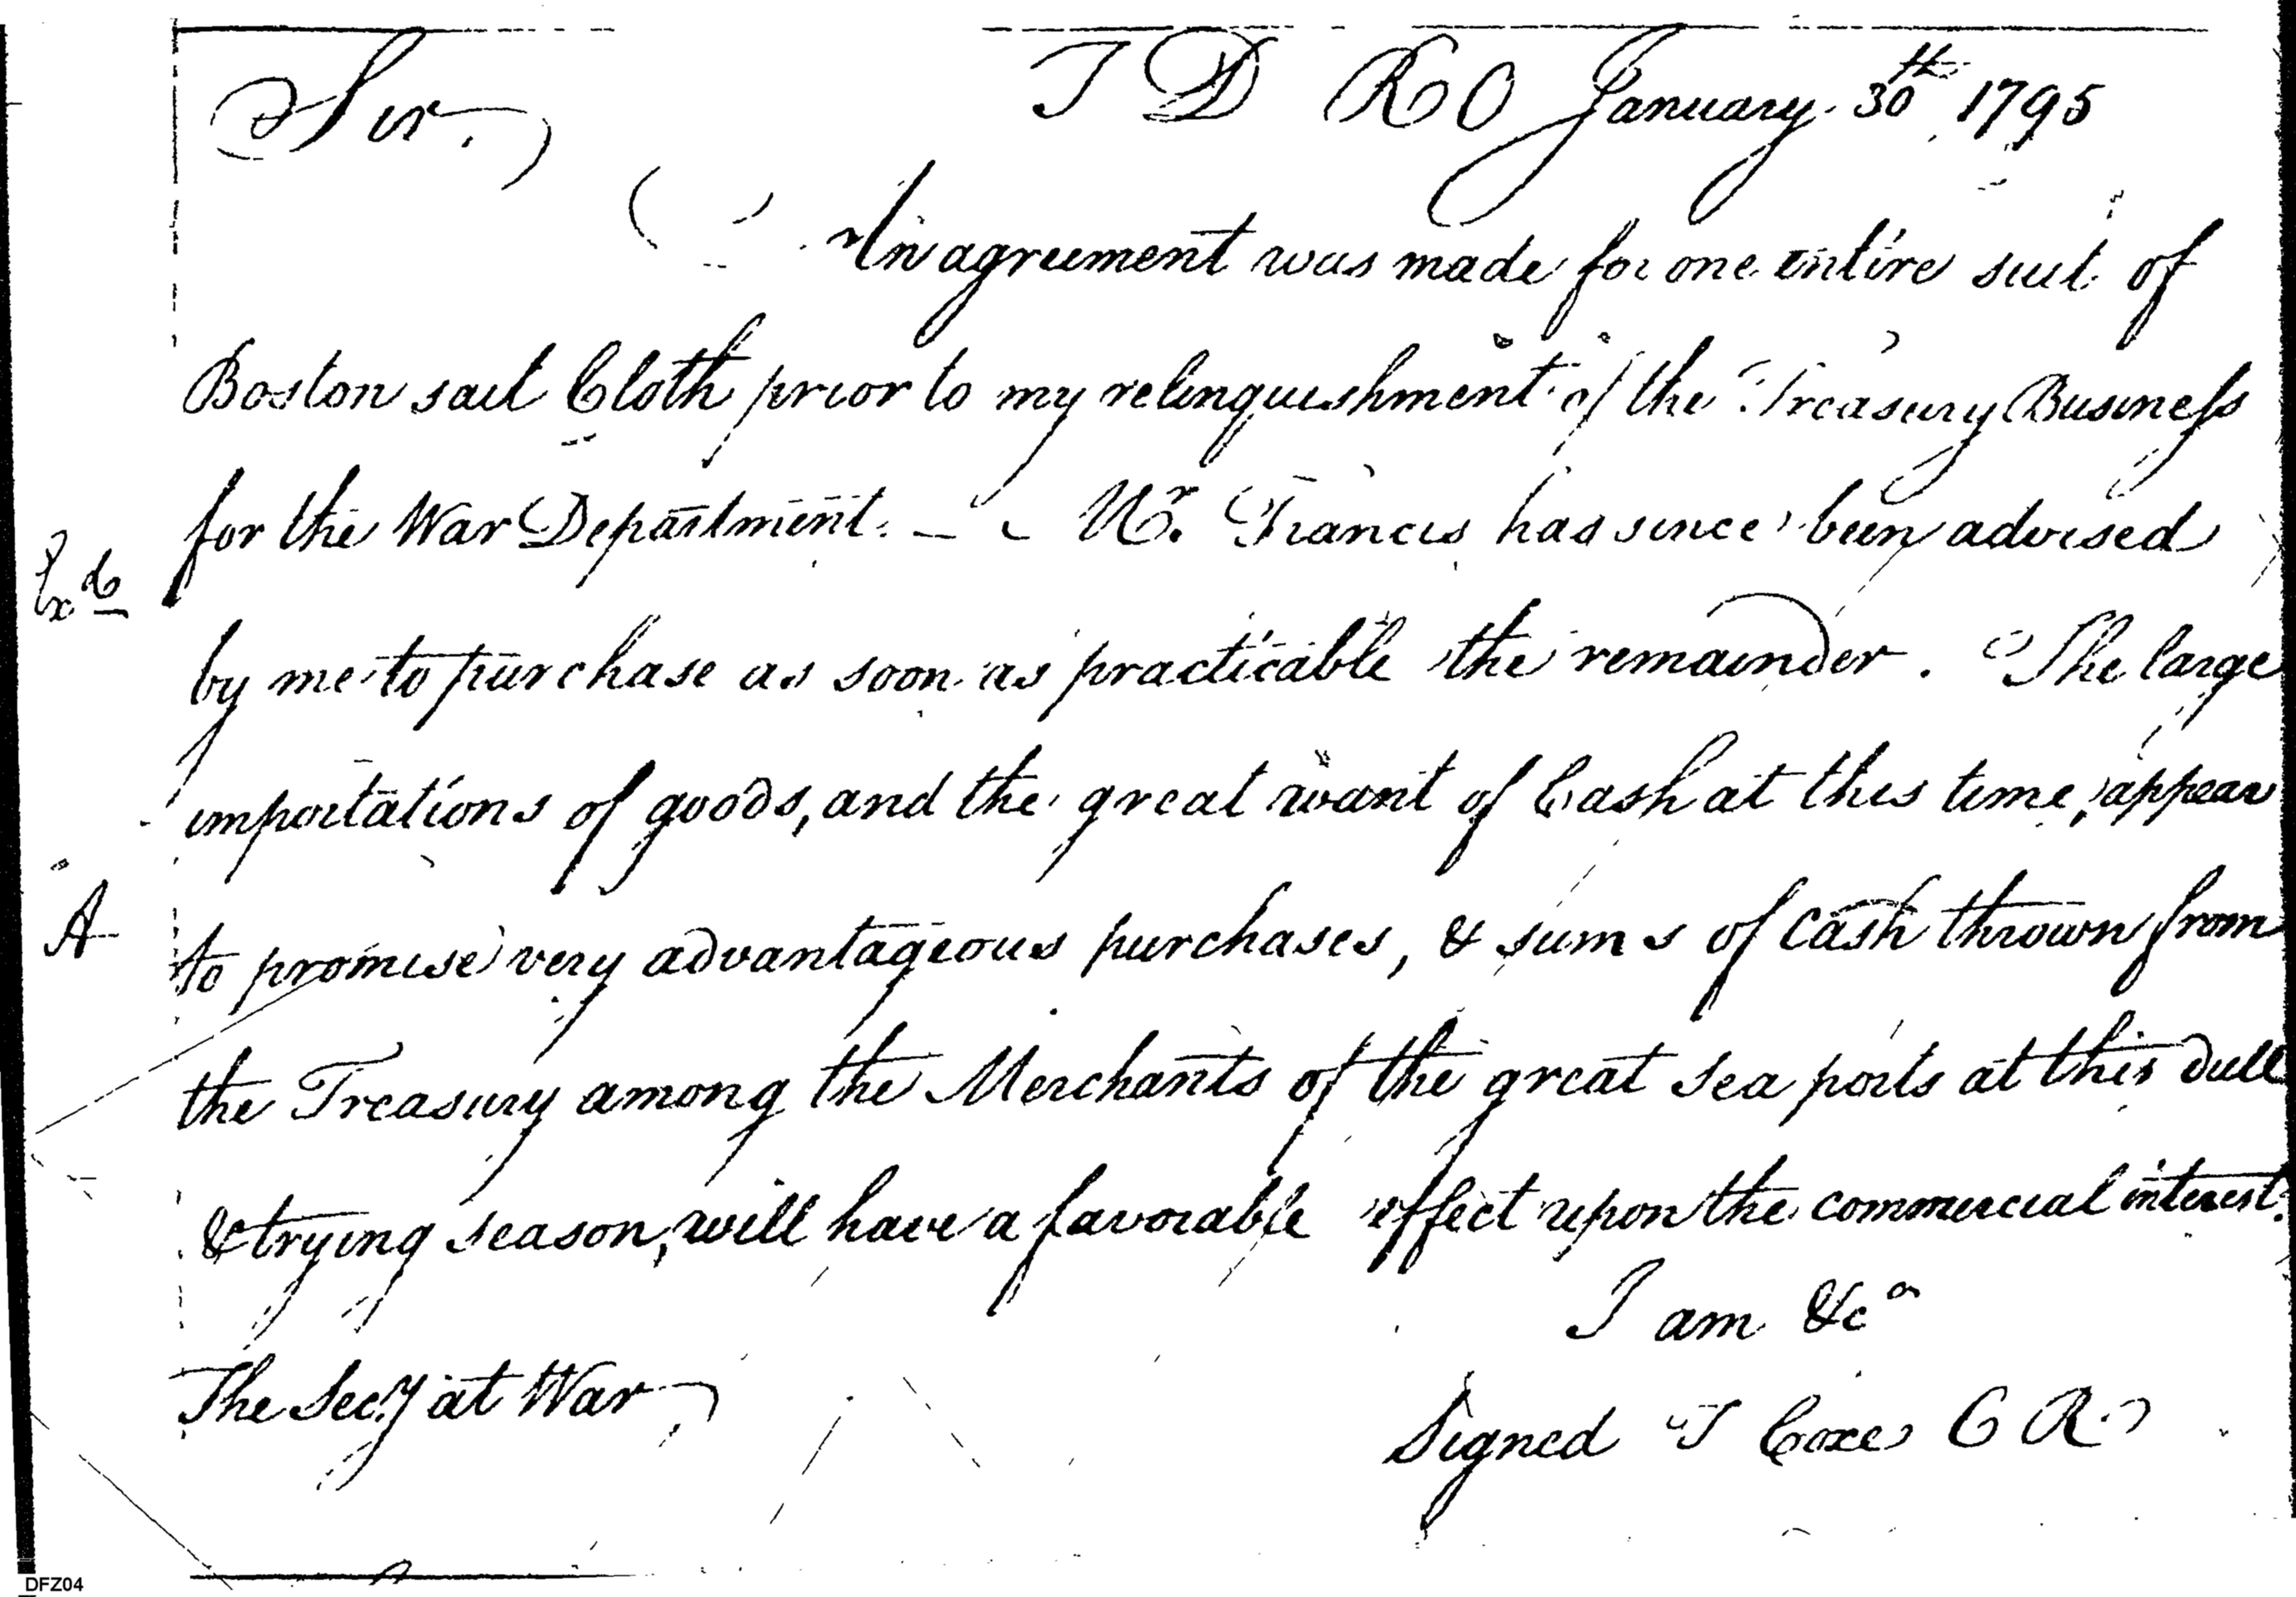 T D R O January 30th 1795
Sir,
An agreement was made for one entire suit of
Boston sail Cloth prior to my relinquishment of the Treasury Business
for the War Department. — Mr. Francis has since been advised
Exd
by me to purchase as soon as practicable the remainder. The large
importations of goods, and the great want of Cash at this time, appear
A
to promise very advantageous purchases, & sums of Cash thrown from
the Treasury among the Merchants of the great sea ports at this dull
& trying season, will have a favorable effect upon the commercial interest.
I am &ca
The Secy at War
Signed T Coxe C R
DFZ04